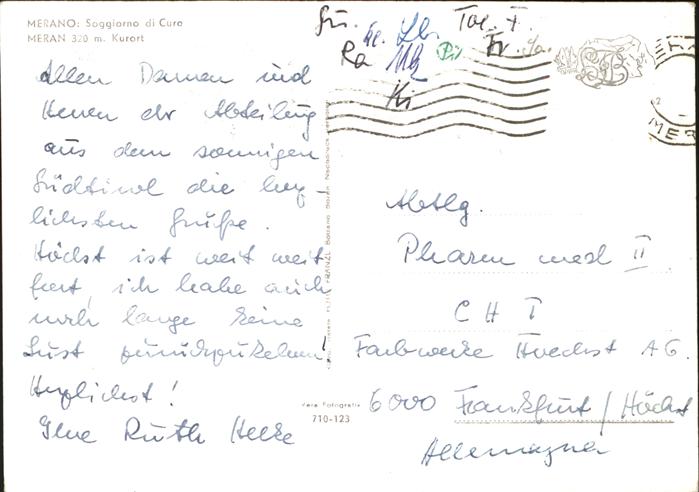 MERANO: Soggiorno di Cura
MERAN 320 m. Kurort
Allen Damen und
Herren der Abteilung
aus dem sonnigen
Südtirol die herz-
lichsten Grüße.
Höchst ist weit weit
fort, ich habe auch
noch lange keine
Lust zurückzukehren!
Herzlichst!
Ihre Ruth
Vera Fotografia
710-123
Abtlg.
Pharm med II
C H I
Farbwerke Hoechst AG.
6000 Frankfurt/Höchst
Allemagna
Ra
Ki
MER